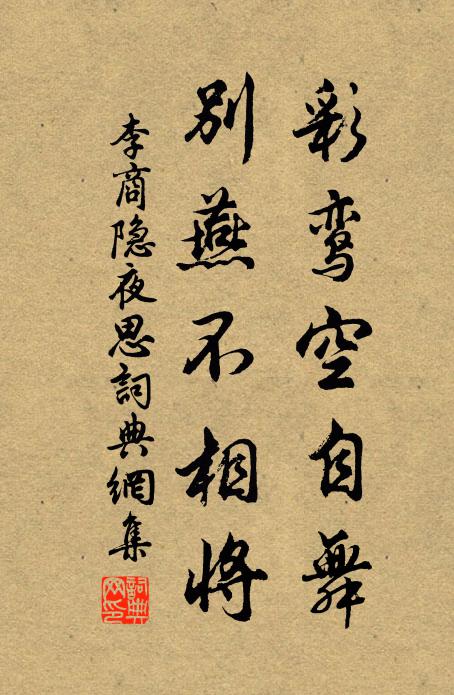 彩鸾空自舞
别燕不相将
李商隐夜思詞典網集
詞典网印